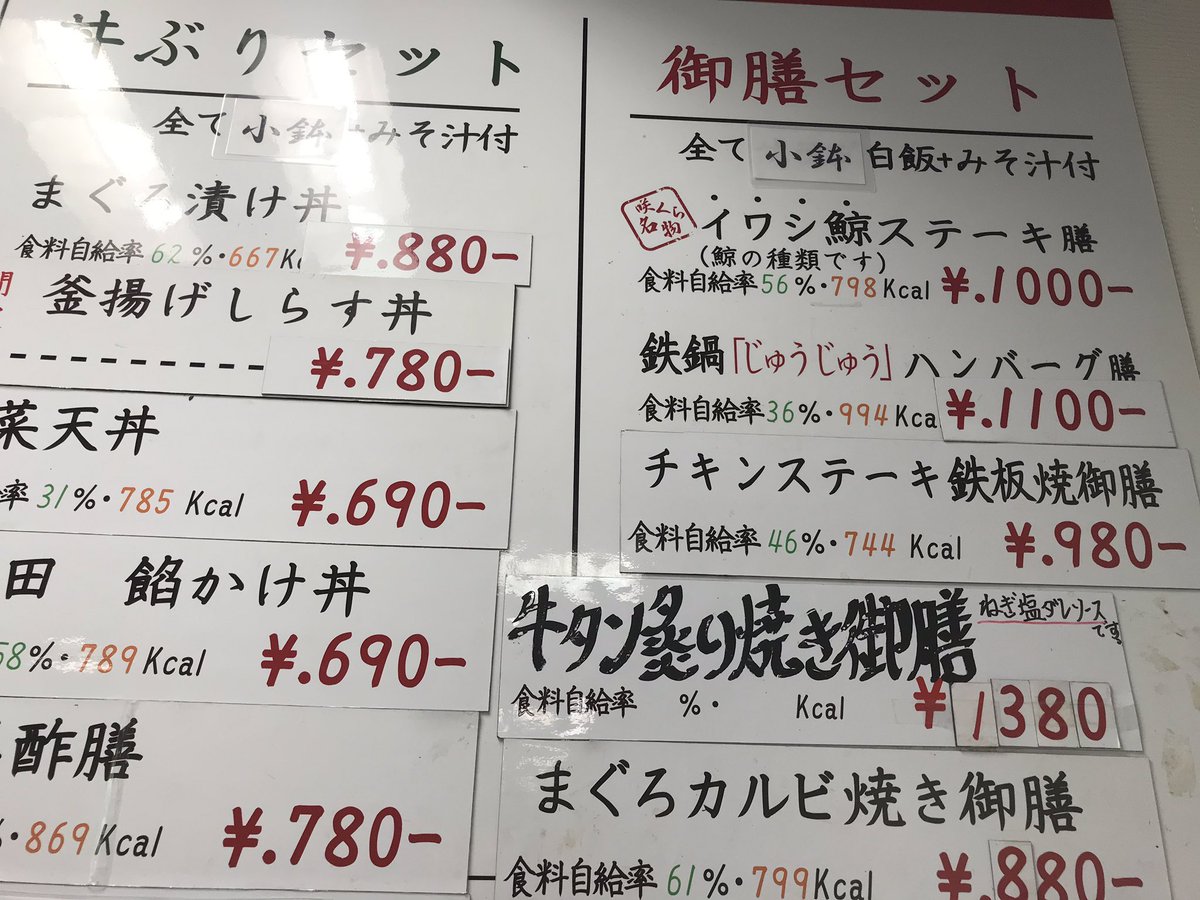 丼ぶりセット
全て小鉢+みそ汁付
まぐろ漬け丼
食料自給率62%・667Kc ¥.880-
釜揚げしらす丼
---------- ¥.780-
菜天丼
率31%・785Kcal ¥.690-
田 餡かけ丼
58%・789Kcal ¥.690-
酢膳
%・869Kcal ¥.780-
御膳セット
全て小鉢白飯+みそ汁付
咲くら
名物
イワシ鯨ステーキ膳
(鯨の種類です)
食料自給率56%・798Kcal ¥.1000-
鉄鍋「じゅうじゅう」ハンバーグ膳
食料自給率36%・994Kca ¥.1100-
チキンステーキ鉄板焼御膳
食料自給率46%・744Kcal ¥.980-
牛タン炙り焼き御膳
ねぎ塩ダレソース
です
食料自給率 %・ Kcal ¥1380
まぐろカルビ焼き御膳
食料自給率61%・799Kcal ¥.880-